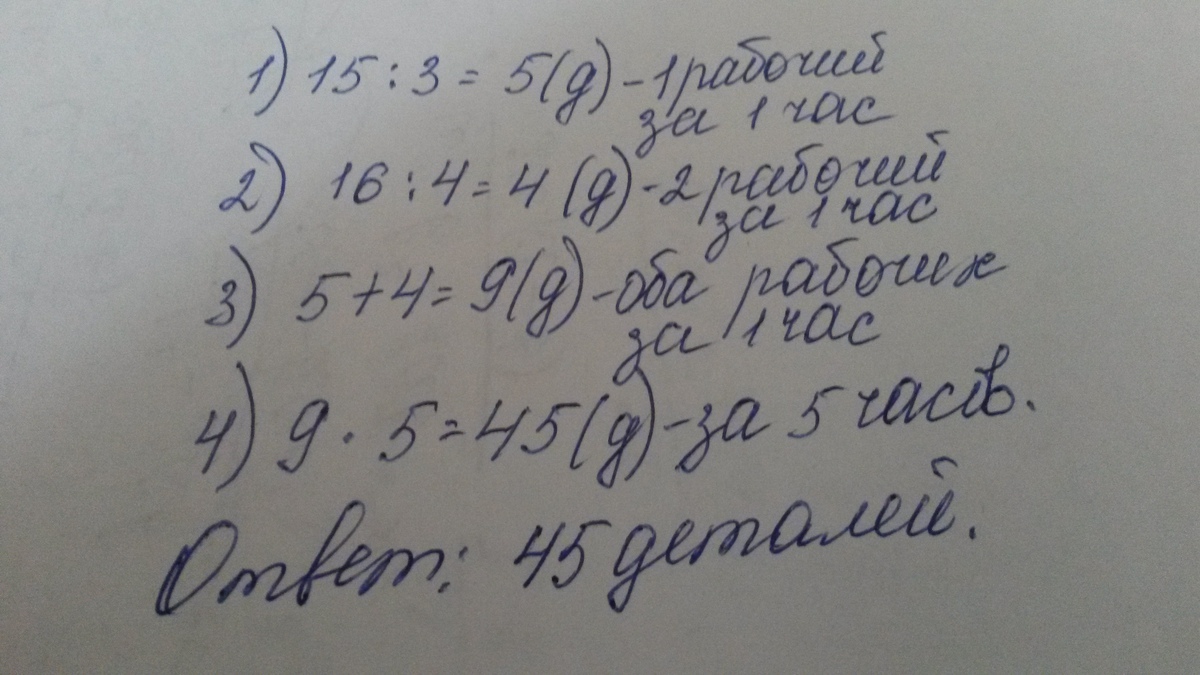 1) 15 : 3 = 5 (д) - 1 рабочий
за 1 час
2) 16 : 4 = 4 (д) - 2 рабочий
за 1 час
3) 5 + 4 = 9 (д) - оба рабочих
за 1 час
4) 9 · 5 = 45 (д) - за 5 часов.
Ответ: 45 деталей.